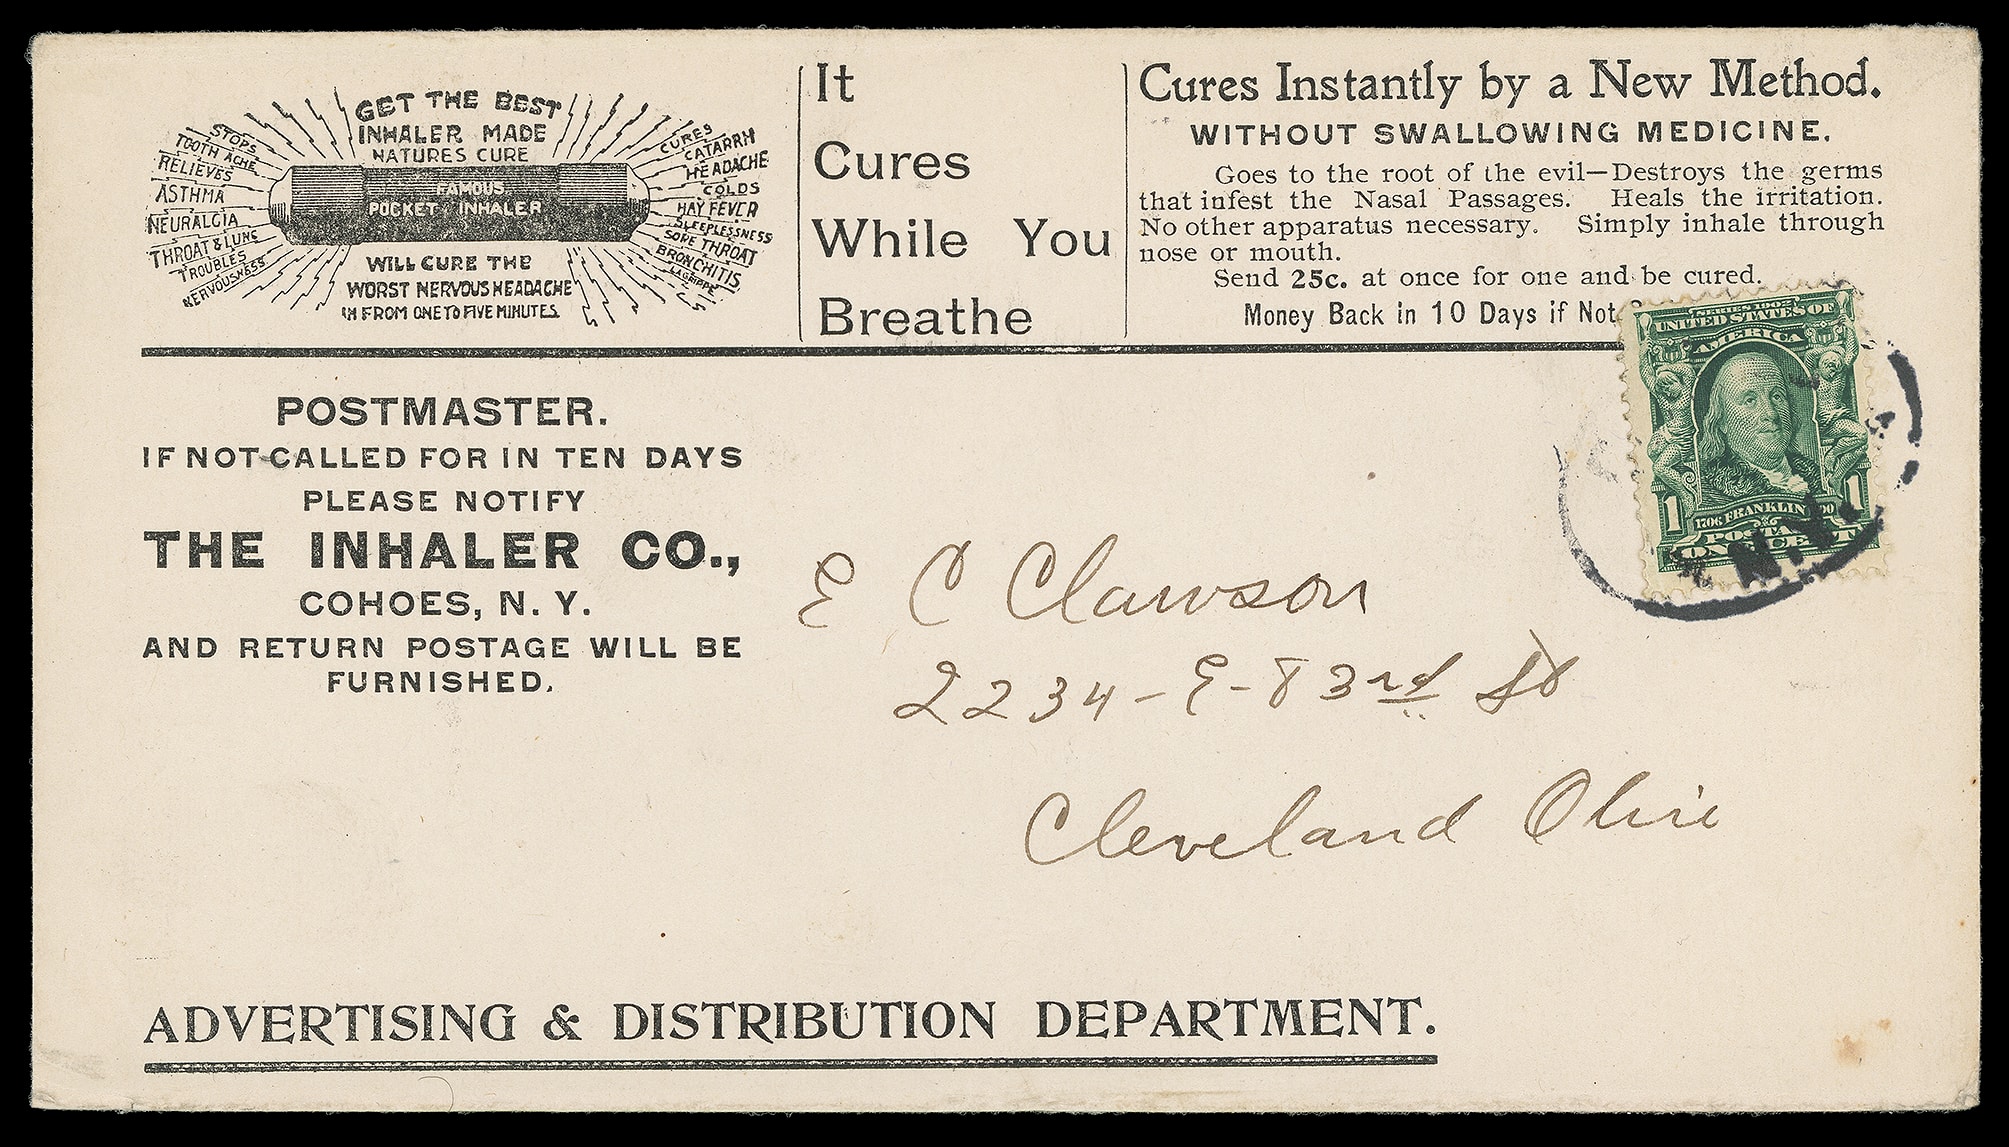 GET THE BEST
INHALER MADE
NATURES CURE
FAMOUS
POCKET INHALER
STOPS
TOOTH ACHE
RELIEVES
ASTHMA
NEURALGIA
THROAT & LUNG
TROUBLES
NERVOUSNESS
CURES
CATARRH
HEADACHE
COLDS
HAY FEVER
SLEEPLESSNESS
SORE THROAT
BRONCHITIS
LAGRIPPE
WILL CURE THE
WORST NERVOUS HEADACHE
IN FROM ONE TO FIVE MINUTES
It
Cures
While You
Breathe
Cures Instantly by a New Method.
WITHOUT SWALLOWING MEDICINE.
Goes to the root of the evil—Destroys the germs
that infest the Nasal Passages. Heals the irritation.
No other apparatus necessary. Simply inhale through
nose or mouth.
Send 25c. at once for one and be cured.
Money Back in 10 Days if Not
SERIES 1902
UNITED STATES OF
AMERICA
1706 FRANKLIN
1 1
POSTAGE
ONE CENT
N.Y.
POSTMASTER.
IF NOT CALLED FOR IN TEN DAYS
PLEASE NOTIFY
THE INHALER CO.,
COHOES, N. Y.
AND RETURN POSTAGE WILL BE
FURNISHED.
E C Clawson
2234-E-83rd St
Cleveland Ohio
ADVERTISING & DISTRIBUTION DEPARTMENT.